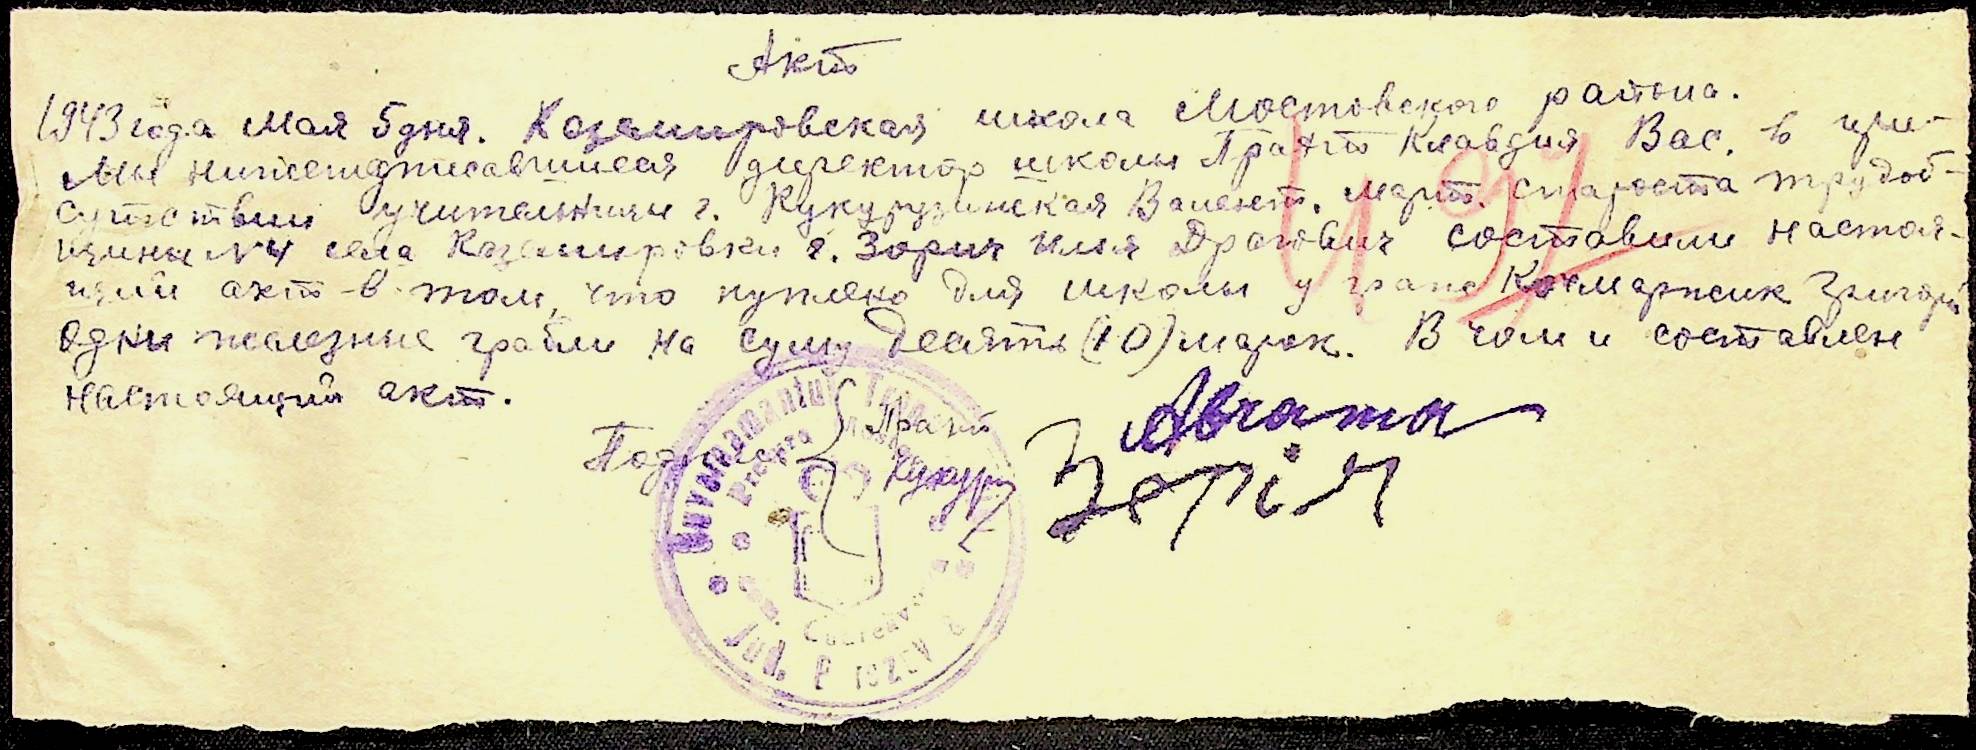 Акт
1943 года мая 5 дня. Казимировская школа Мостовского района.
Мы нижеподписавшиеся директор школы Прант Клавдия Вас. в при-
сутствии учительницы г. Кукурузинская Валент. Март. староста трудоб-
щины №4 села Казимировки г. Зорич Илья Драгович составили настоя-
щий акт в том, что куплено для школы у граж. Григорій
одни железные грабли на суму десять (10) марок. В чом и составлен
настоящий акт.
Прант
Кукуру
Guvernamantul
Pretura
Jud.